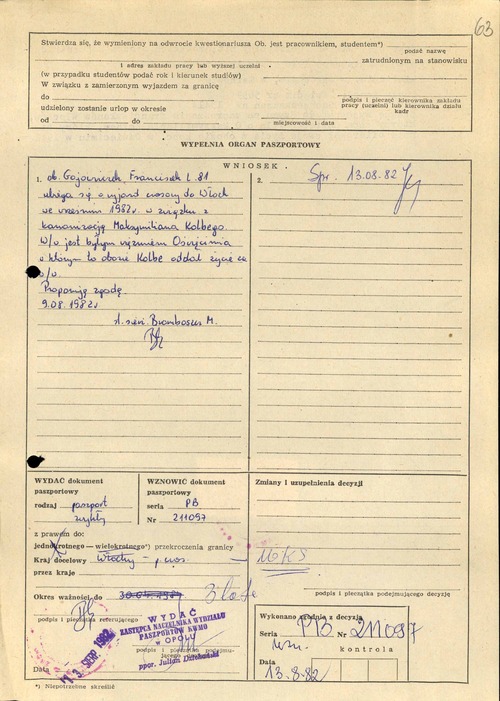 63
Stwierdza się, że wymieniony na odwrocie kwestionariusza Ob. jest pracownikiem, studentem*)
podać nazwę
i adres zakładu pracy lub wyższej uczelni
zatrudnionym na stanowisku
(w przypadku studentów podać rok i kierunek studiów)
W związku z zamierzonym wyjazdem za granicę
do
podpis i pieczęć kierownika zakładu
pracy (uczelni) lub kierownika działu
kadr
udzielony zostanie urlop w okresie
od do
miejscowość i data
WYPEŁNIA ORGAN PASZPORTOWY
WNIOSEK
1. ob. Gajowniczek Franciszek l. 81
ubiega się o wyjazd czasowy do Włoch
we wrześniu 1982 r. w związku z
kanonizacją Maksymiliana Kolbego.
W/w jest byłym więźniem Oświęcimia
o którym to obozie Kolbe oddał życie za
w/w.
Proponuję zgodę.
9.08.1982 r.
2. Spr. 13.08.82
WYDAĆ dokument
paszportowy
rodzaj paszport
zwykły
WZNOWIĆ dokument
paszportowy
seria PB
Nr 211097
Zmiany i uzupełnienia decyzji
z prawem do:
jednokrotnego — wielokrotnego*) przekroczenia granicy
Kraj docelowy Włochy
przez kraje
Okres ważności do
podpis i pieczątka referującego
podpis i pieczątka podejmującego decyzję
WYDAĆ
ZASTĘPCA NACZELNIKA WYDZIAŁU
PASZPORTÓW KWMO
w OPOLU
ppor. Julian
19 SIERP 1982
podpis i pieczątka podejmu-
jącego decyzję
Data
Wykonano zgodnie z decyzją
Seria PB Nr 211097
kontrola
Data
13.8.82
*) Niepotrzebne skreślić